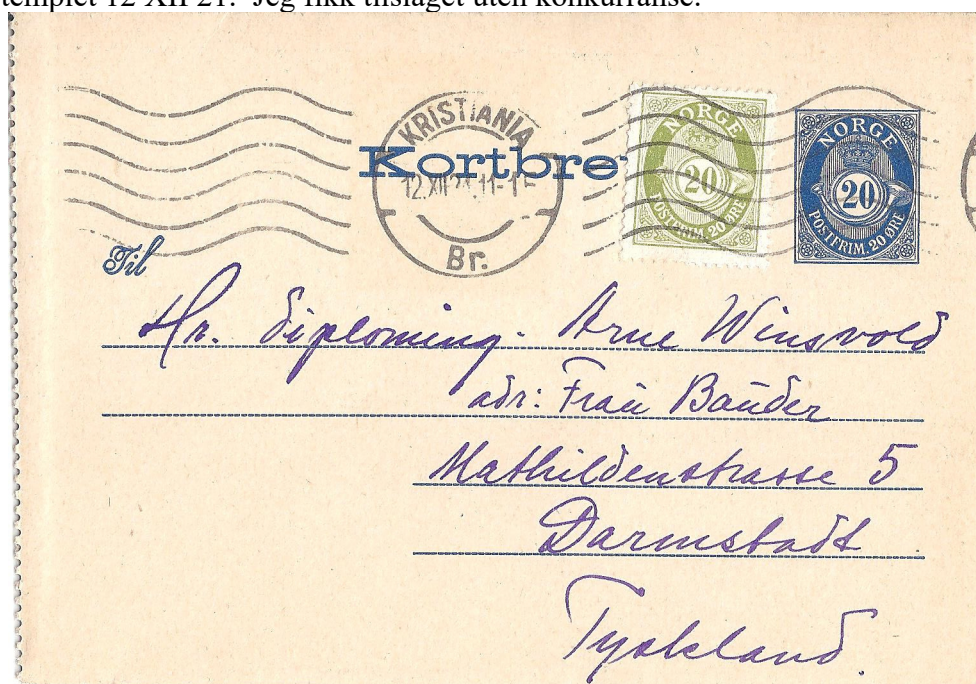 templet 12 XII 21. Jeg fikk tilslaget uten konkurranse.
KRISTIANIA
12.XII 21.11-1 E
Br.
Kortbre
NORGE
20
POSTFRIM. 20 ØRE
NORGE
20
POSTFRIM. 20 ØRE
Til
Hr. Diploming. Arne Winsvold
adr: Frau Bauder
Mathildenstrasse 5
Darmstadt
Tyskland.